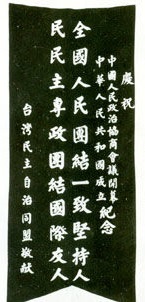 慶祝
中國人民政治協商會議開幕
中華人民共和國成立
紀念
全國人民團結一致堅持人
民民主專政團結國際友人
台灣民主自治同盟敬献